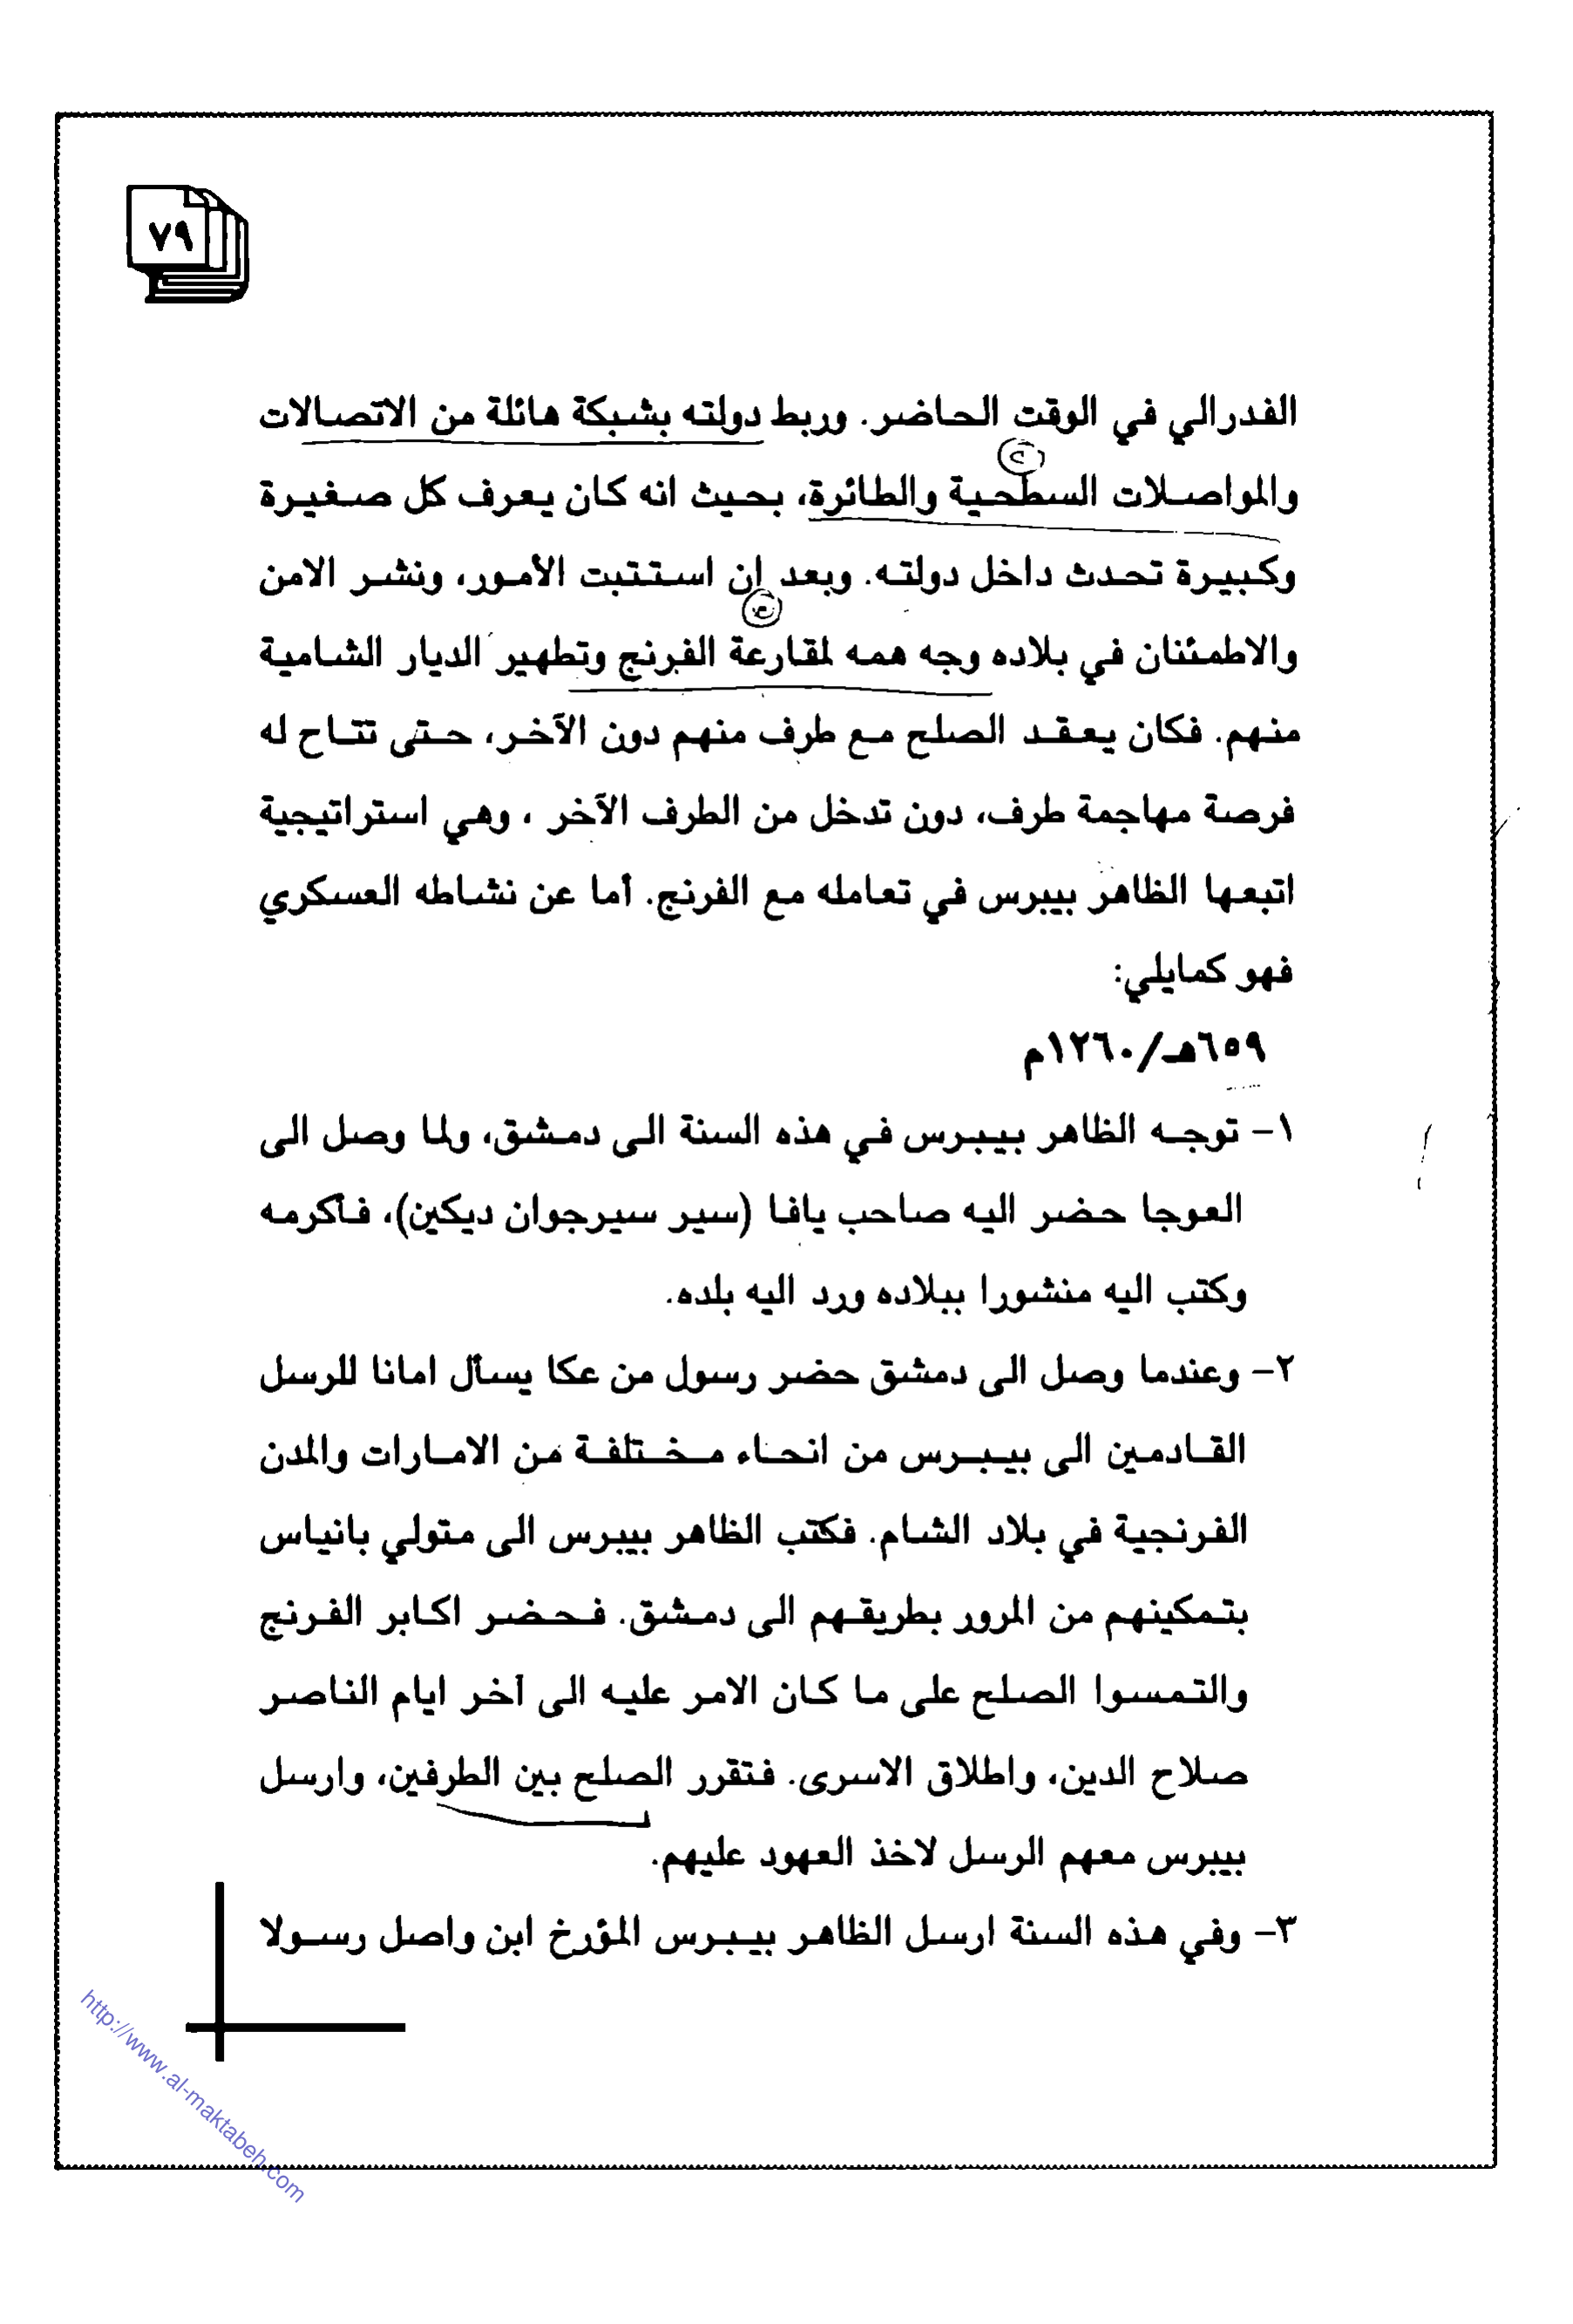 ٧٩
الفدرالي في الوقت الحاضر. وربط دولته بشبكة هائلة من الاتصالات
والمواصلات السطحية والطائرة، بحيث انه كان يعرف كل صغيرة
وكبيرة تحدث داخل دولته. وبعد إن استتبت الأمور، ونشر الامن
والاطمئنان في بلاده وجه همه لمقارعة الفرنج وتطهير الديار الشامية
منهم. فكان يعقد الصلح مع طرف منهم دون الآخر، حتى تتاح له
فرصة مهاجمة طرف، دون تدخل من الطرف الآخر ، وهي استراتيجية
اتبعها الظاهر بيبرس في تعامله مع الفرنج. أما عن نشاطه العسكري
فهو كمايلي:
٦٥٩هـ/١٢٦٠م
١- توجه الظاهر بيبرس في هذه السنة الى دمشق، ولما وصل الى
العوجا حضر اليه صاحب يافا (سير سيرجوان ديكين)، فأكرمه
وكتب اليه منشورا ببلاده ورد اليه بلده.
٢- وعندما وصل الى دمشق حضر رسول من عكا يسأل امانا للرسل
القادمين الى بيبرس من انحاء مختلفة من الامارات والمدن
الفرنجية في بلاد الشام. فكتب الظاهر بيبرس الى متولي بانياس
بتمكينهم من المرور بطريقهم الى دمشق. فحضر اكابر الفرنج
والتمسوا الصلح على ما كان الامر عليه الى آخر ايام الناصر
صلاح الدين، واطلاق الاسرى. فتقرر الصلح بين الطرفين، وارسل
بيبرس معهم الرسل لاخذ العهود عليهم.
٣- وفي هذه السنة ارسل الظاهر بيبرس المؤرخ ابن واصل رسولا
http://www.al-maktabeh.com